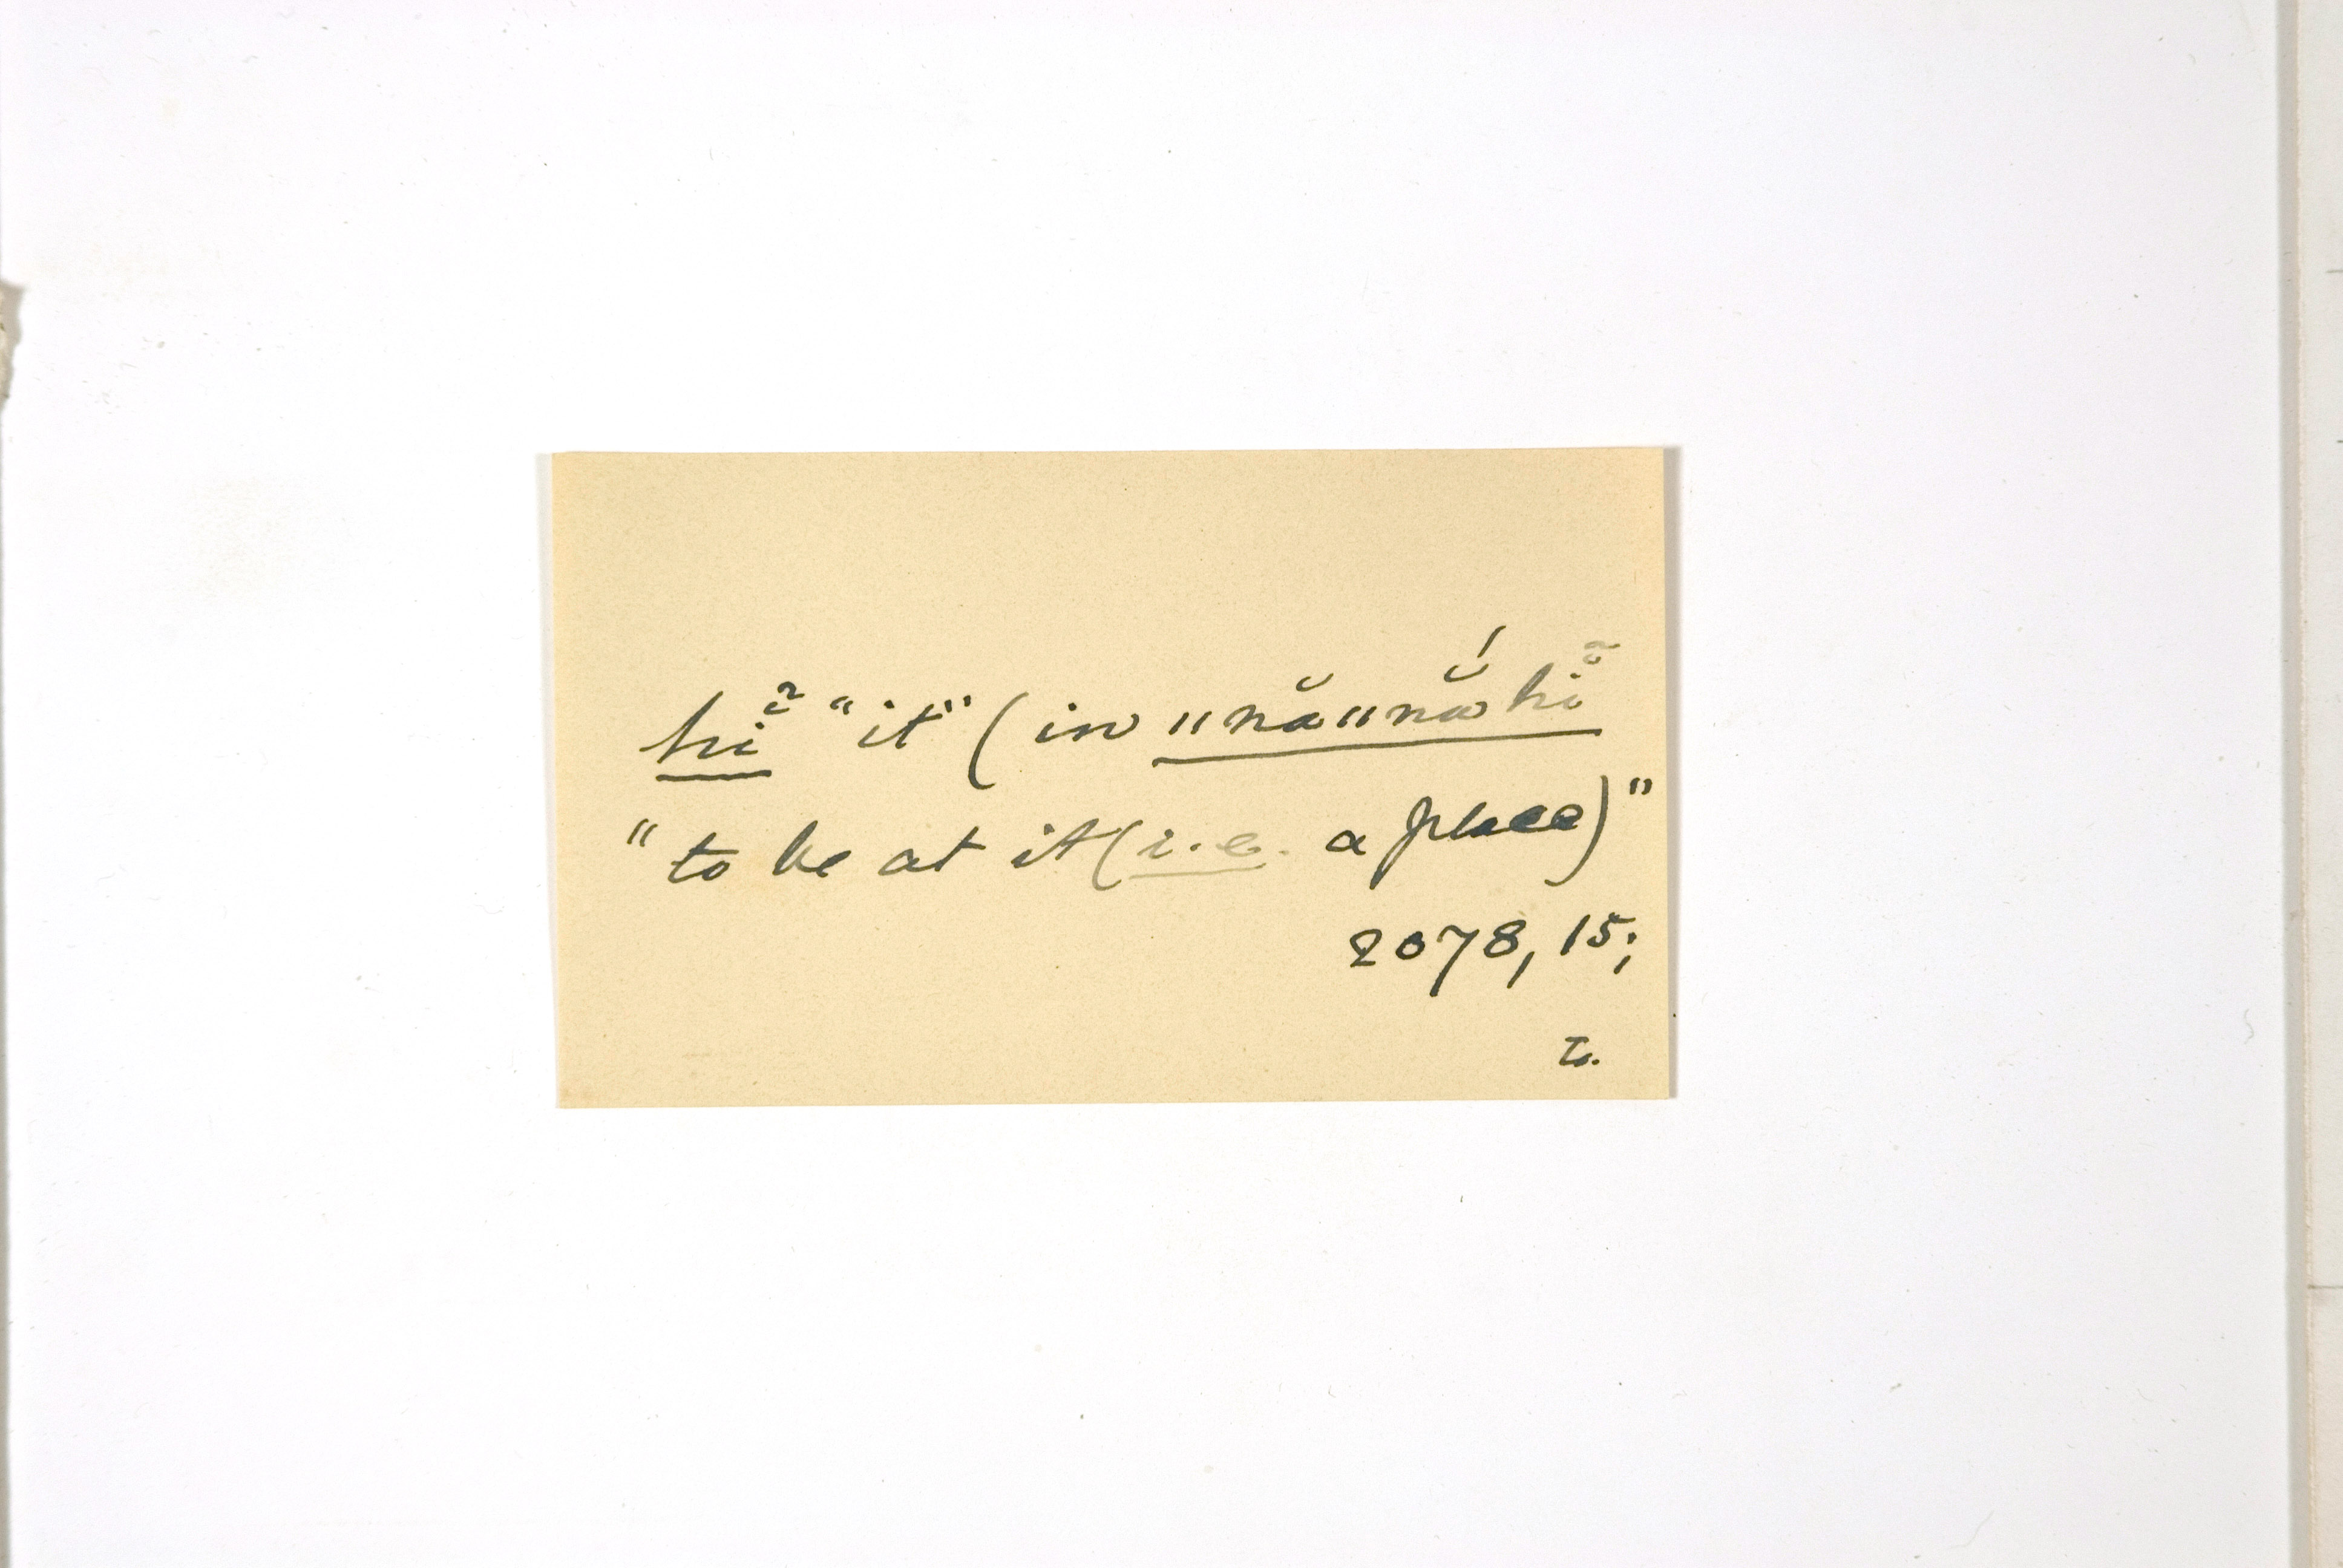 hĭ̃ "it" (in "nă"nắhĭ̃
"to be at it (i.e. a place)"
2078, 15;